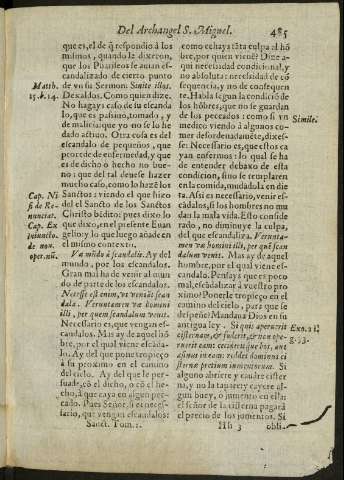 Del Archangel S. Miguel.
485
que es, el de q̃ respondió a los
mismos, quando le dixeron,
que los Phariseos se auian es-
candalizado de cierto punto
de vn su Sermon. Sinite illos.
Dexaldos. Como quien dize.
No hagays caso de su escanda
lo, que es passiuo, tomado, y
de malicia: que yo no le he
dado actiuo. Otra cosa es el
escandalo de pequeños, que
procede de enfermedad, y que
es de dicho o hecho no bue-
no: que del tal deuese hazer
mucho caso, como lo hazē los
Sanctos: viendo el que hizo
del el Sancto de los Sanctos
Christo bēdito: pues dixo lo
que dixo, en el presente Euan
gelio: y lo que luego añade en
el mismo contexto.
Væ mūdo à scandalis. Ay del
mundo, por los escandalos.
Gran mal ha de venir al mun
do de parte de los escandalos.
Necesse est enim, vt veniāt scan
dala. Veruntamen væ homini
illi, per quem scandalum venit.
Necessario es, que vengan es-
candalos. Mas ay de aquel hō
bre, por el qual viene escāda-
lo. Ay del que pone tropieço
à su proximo en el camino
del cielo. Ay del que le per-
suade, cō el dicho, o cō el he-
cho, à que caya en algun pec-
cado. Pues Señor, si es neces-
sario, que vengan escandalos:
Sanct. Tom. 1.
Matth.
15. b. 14.
Cap. Ni
si de Re-
nunciat.
Cap. Ex
iniuncto.
de nou.
oper. nū.
como echays tāta culpa al hō
bre, por quien vienē? Dize a-
qui necesidad condicional, y
no absoluta: necesidad de cō
sequencia, y no de consequen
te. Habla segun la condiciō de
los hōbres, que no se guardan
de los peccados: como si vn
medico viendo à algunos co-
mer desordenadamēte, dixes-
se: Necessario es, que estos ca
yan enfermos: lo qual se ha
de entender debaxo de esta
condicion, sino se templaren
en la comida, mudādola en die
ta. Assi es necessario, venir es-
cādalos, si los hombres no mu
dan la mala vida. Esto conside
rado, no diminuye la culpa,
del que escandaliza. Verunta-
men væ homini illi, per quē scan
dalum venit. Mas ay de aquel
hombre, por el qual viene es-
candalo. Pensays que es poco
mal, escādalizar à vuestro pro
ximo? Ponerle tropieço en el
camino del cielo, para que se
despeñe? Mandaua Dios en su
antigua ley. Si quis aperuerit
cisternam, & foderit, & non ope-
ruerit eam: cecideritque bos, aut
asinus in eam: reddet dominus ci
sternæ pretium iumentorum. Si
alguno abriere y cauāre cister
na, y no la tapare: y cayere al-
gun buey, o jumento en ella:
el señor de la cisterna pagarà
el precio de los jumentos. Si
Hh 3
obli-
Simile.
Exo. 21.
g. 33.